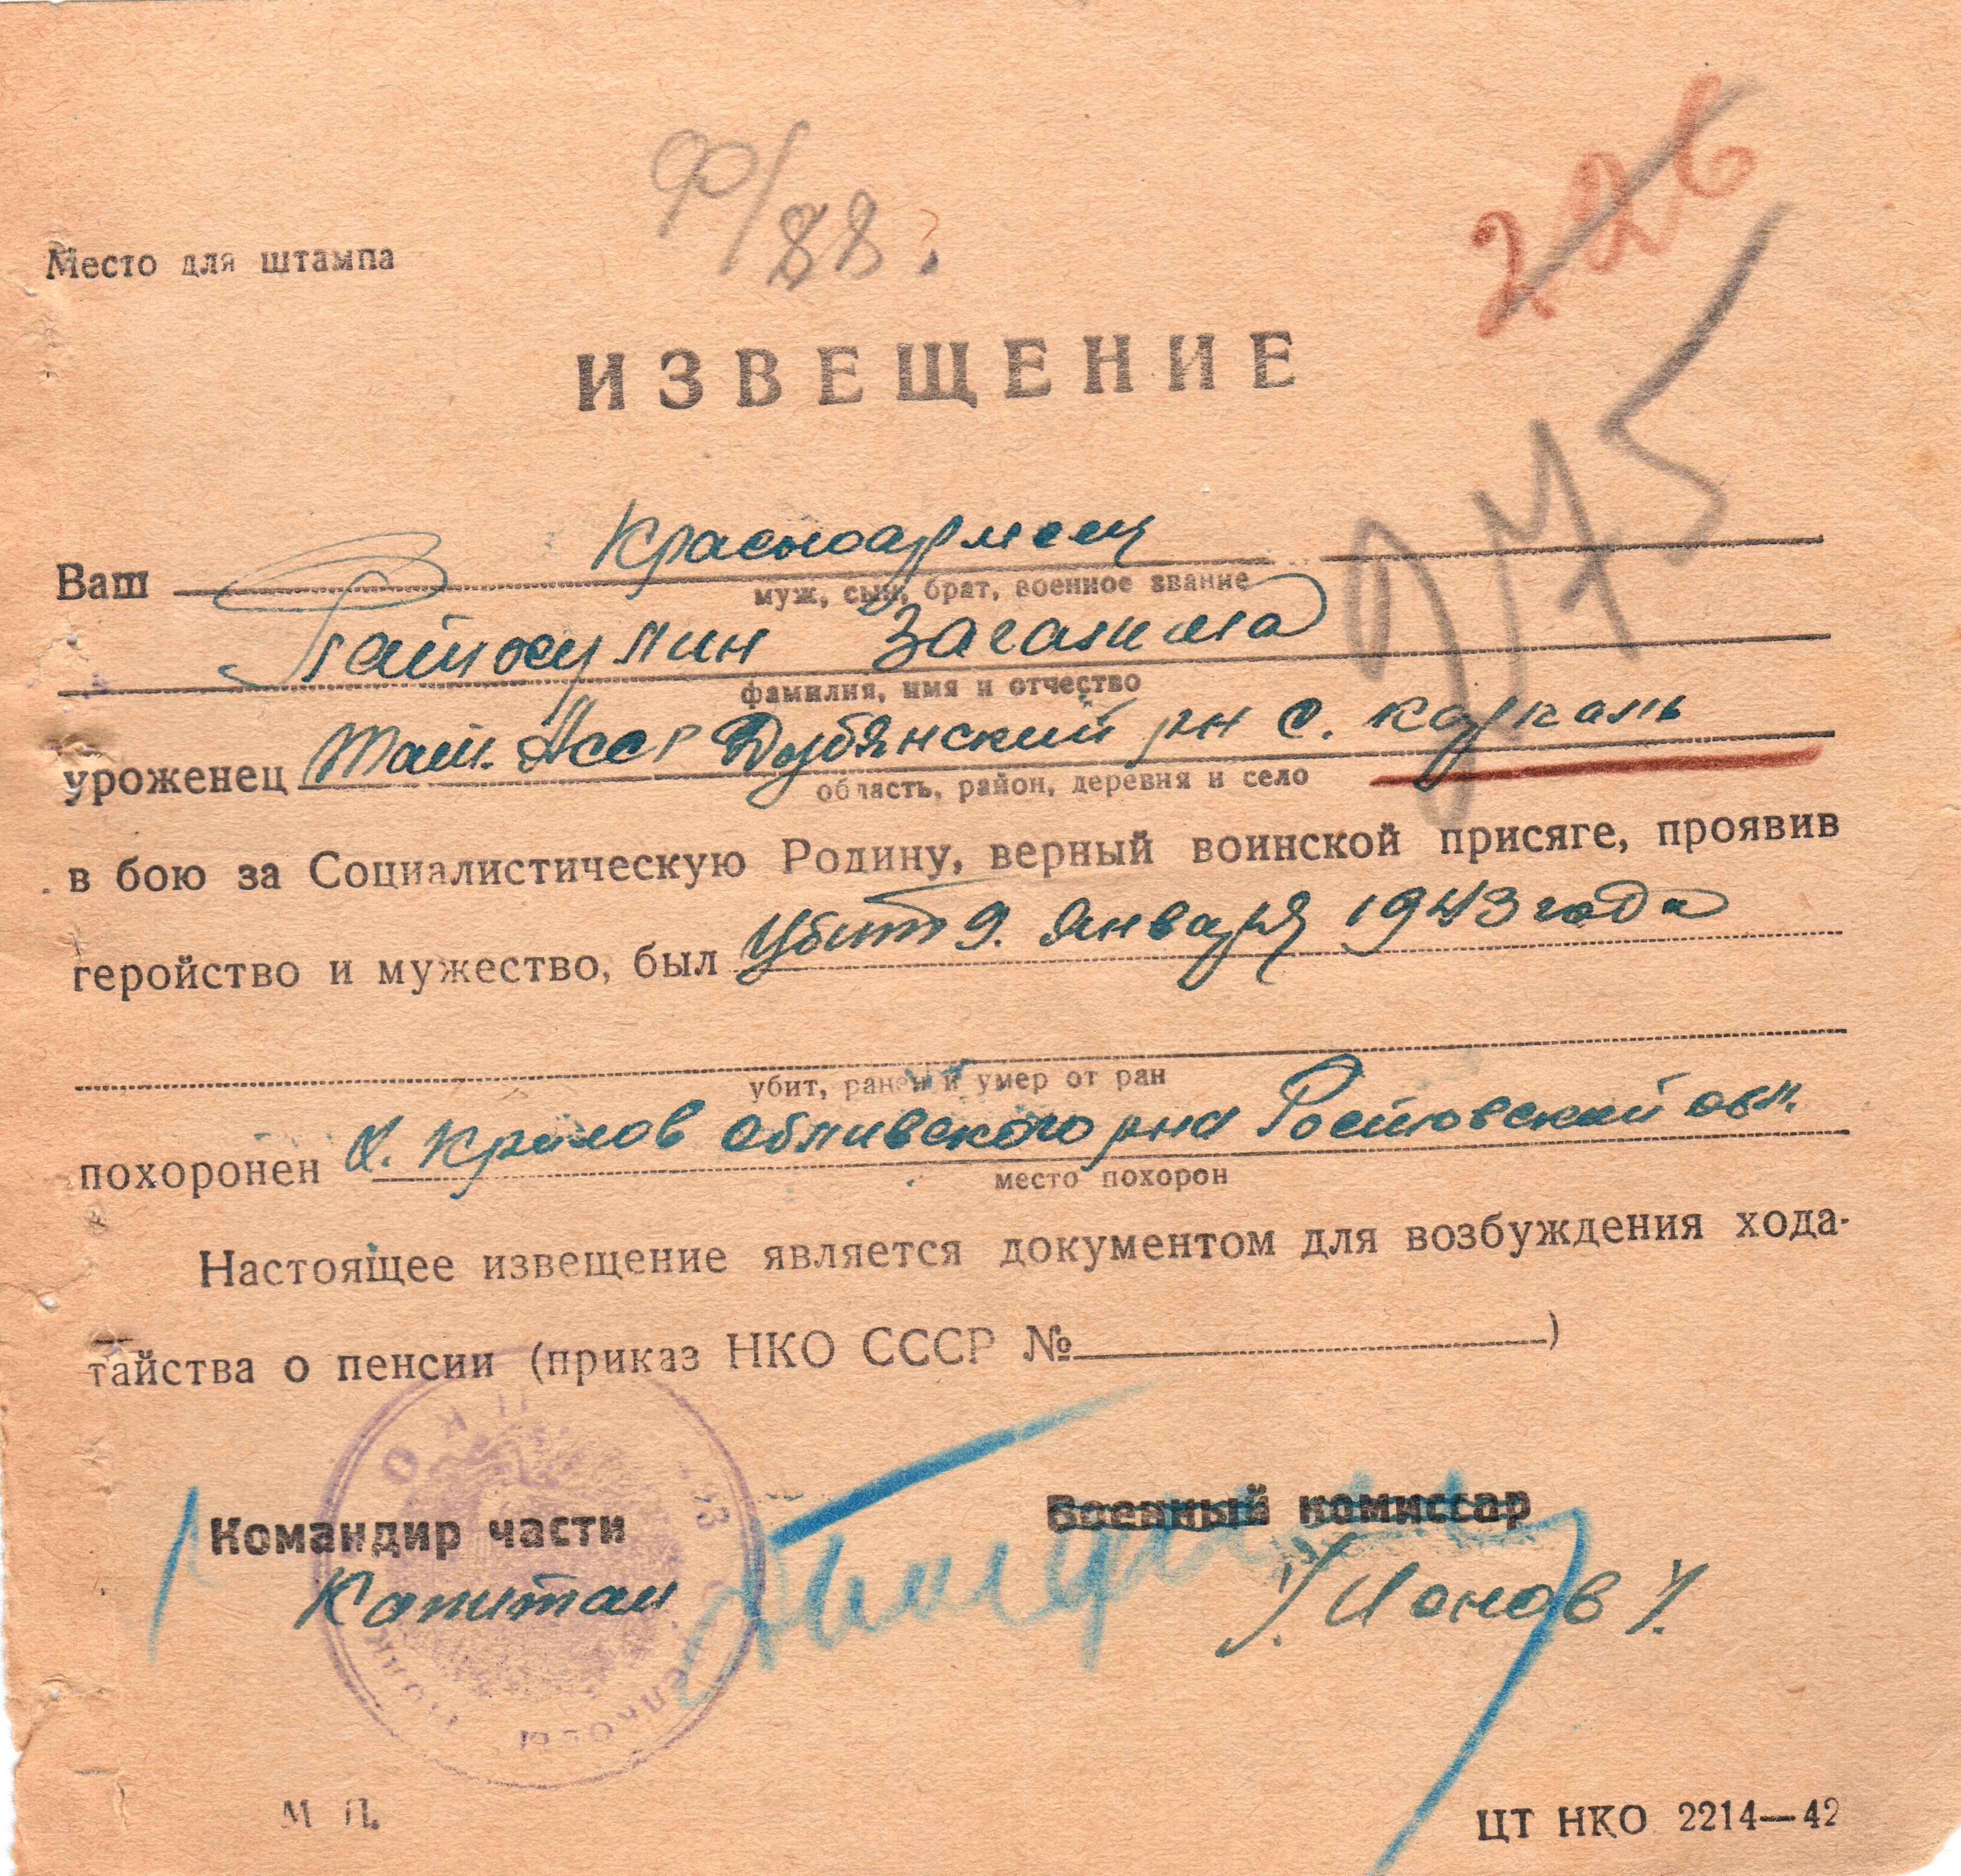 226
Ф/88.
Место для штампа
ИЗВЕЩЕНИЕ
Ваш Красноармеец
муж, сын, брат, военное звание
Загалима
фамилия, имя и отчество
уроженец Тат. Асср Дубянский рн с. Куркаль
область, район, деревня и село
в бою за Социалистическую Родину, верный воинской присяге, проявив
геройство и мужество, был убит 9. Января 1943 года
убит, ранен и умер от ран
похоронен х. Крылов Обливского рна Ростовской обл.
место похорон
Настоящее извещение является документом для возбуждения хода-
тайства о пенсии (приказ НКО СССР № )
Командир части Военный комиссар
Капитан /Ионов/.
М П.
ЦТ НКО 2214—42